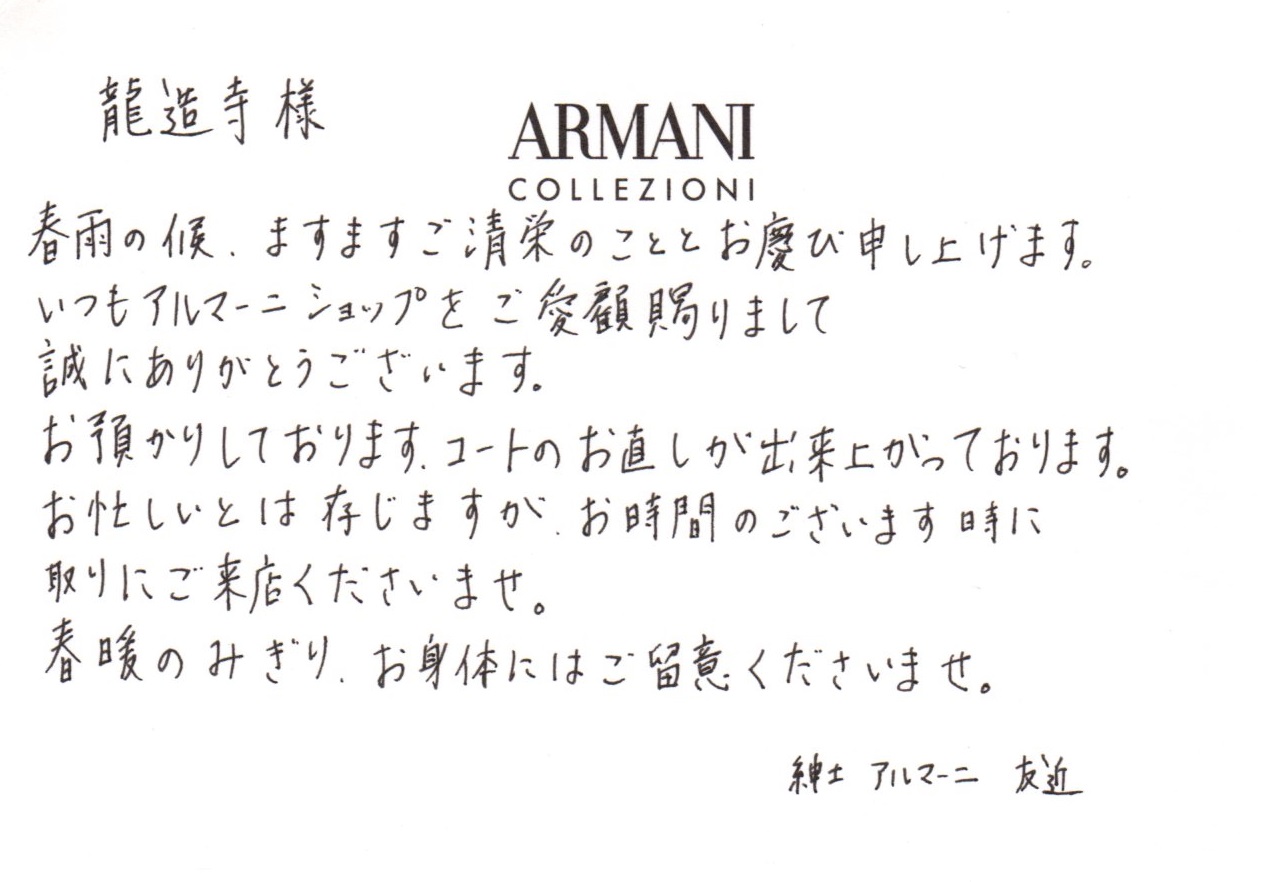 龍造寺様
ARMANI
COLLEZIONI
春雨の候、ますますご清栄のこととお慶び申し上げます。
いつもアルマーニショップをご愛顧賜りまして
誠にありがとうございます。
お預かりしております、コートのお直しが出来上がっております。
お忙しいとは存じますが、お時間のございます時に
取りにご来店くださいませ。
春暖のみぎり、お身体にはご留意くださいませ。
紳士 アルマーニ 友近